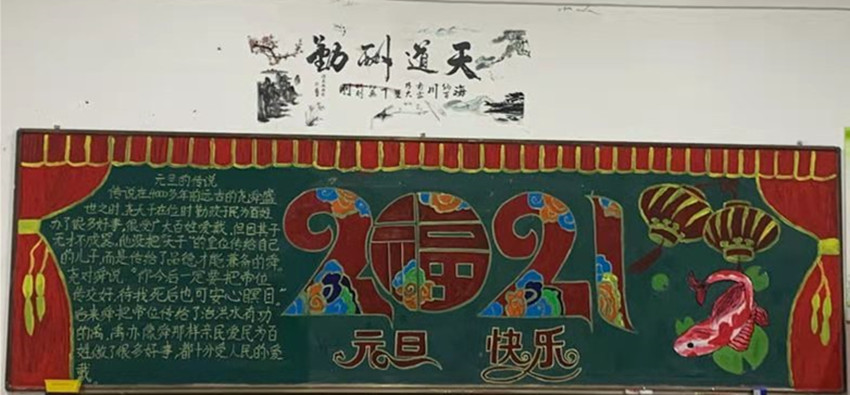 天道酬勤
海纳百川有容乃大壁立千仞
元旦的传说
传说在4000多年前远古的尧舜盛
世之时,尧天子在位时勤政于民为百姓
办了很多好事,很受广大百姓爱戴,但因其子
无才不成器,他没把"天子"的宝位传给自己
的儿子,而是传给了品德才能兼备的舜。
尧对舜说:"你今后一定要把帝位
传交好,待我死后也可安心瞑目。"
后来舜把帝位传给了治洪水有功
的禹,禹亦像舜那样亲民爱民为百
姓做了很多好事,都十分受人民的爱
戴。
2福21
元旦 快乐